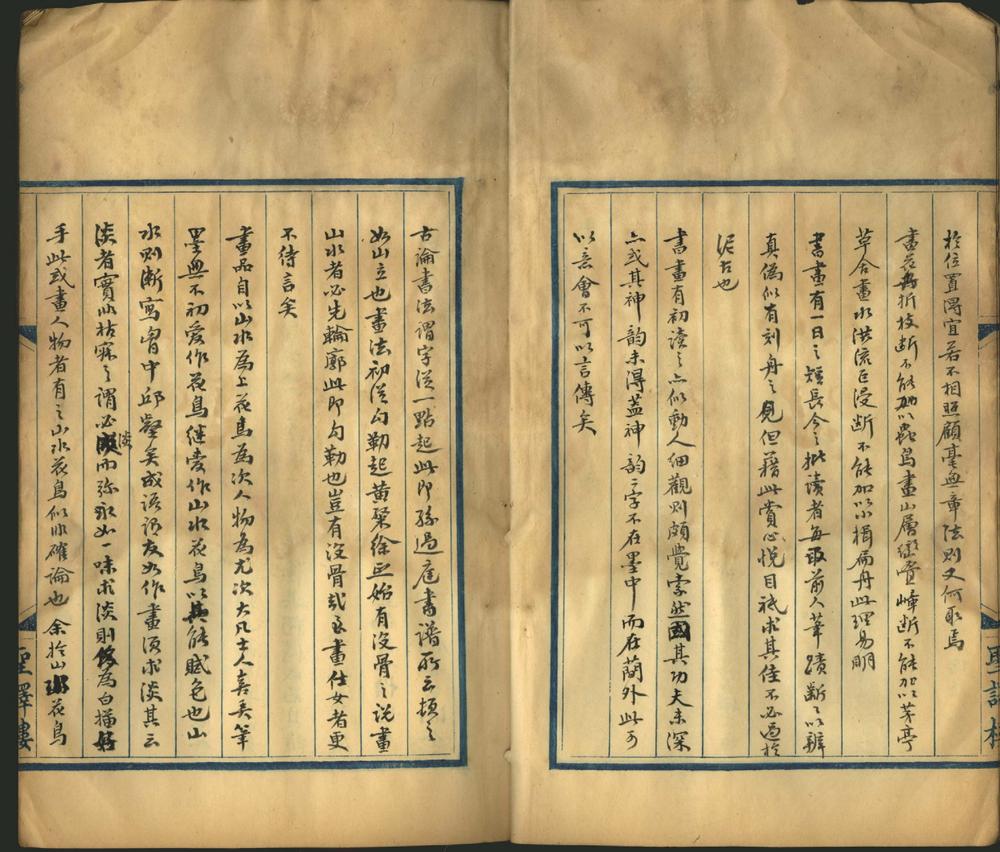 於位置得宜若不相照顧毫無章法則又何取焉
畫花無折枝斷不能加以蟲鳥畫山層巒疊嶂斷不能加以茅亭
草舍畫水洪流巨浸斷不能加以小楫扁舟此理易明
書畫有一日之短長今之批讀者每取前人筆蹟斷之以辨
真偽似有刻舟之見但藉此賞心悅目祗求其佳不必過於
泥古也
書畫有初讀之亦似動人細觀則頗覺索然固其功夫未深
亦或其神韻未得蓋神韻二字不在墨中而在蘭外此可
以意會不可以言傳矣
古論書法謂字從一點起此即孫過庭書譜所云頓之
如山立也畫法初從勾勒起黃筌徐熙始有沒骨之說畫
山水者必先輪廓此即勾勒也豈有沒骨哉至畫仕女者更
不待言矣
畫品自以山水為上花鳥為次人物為尤次大凡士人喜弄筆
墨無不初愛作花鳥繼愛作山水花鳥以其能賦色也山
水則漸寫胸中邱壑矣成語謂友如作畫須求淡其云
淡者實非枯寂之謂必淡而弥永如一味求淡則為白描好
手此或畫人物者有之山水花鳥似非確論也余於山水花鳥
聖譯樓